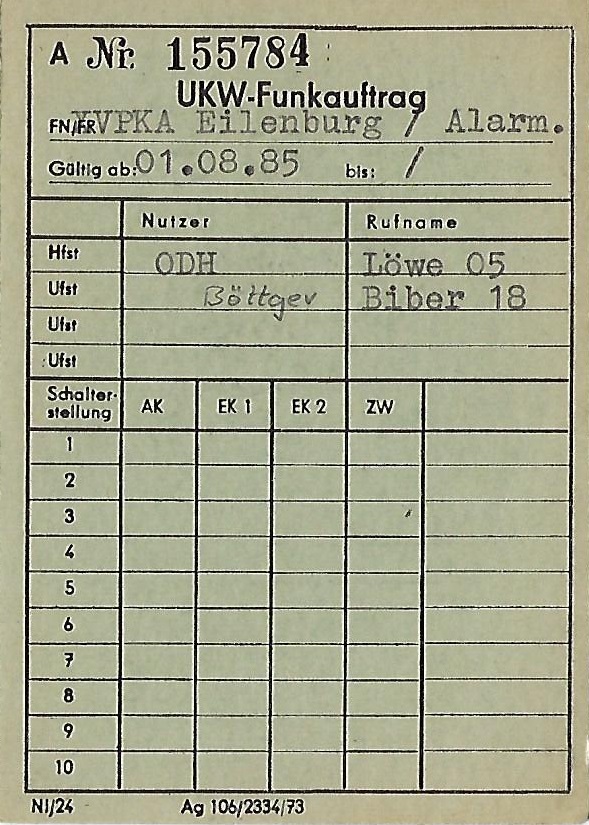 A Nr. 155784
UKW-Funkauftrag
FN/FR VPKA Eilenburg / Alarm.
Gültig ab: 01.08.85 bis: /
Nutzer Rufname
Hfst ODH Löwe 05
Ufst Böttger Biber 18
Ufst
Ufst
Schalter-
stellung AK EK 1 EK 2 ZW
1
2
3
4
5
6
7
8
9
10
NI/24 Ag 106/2334/73